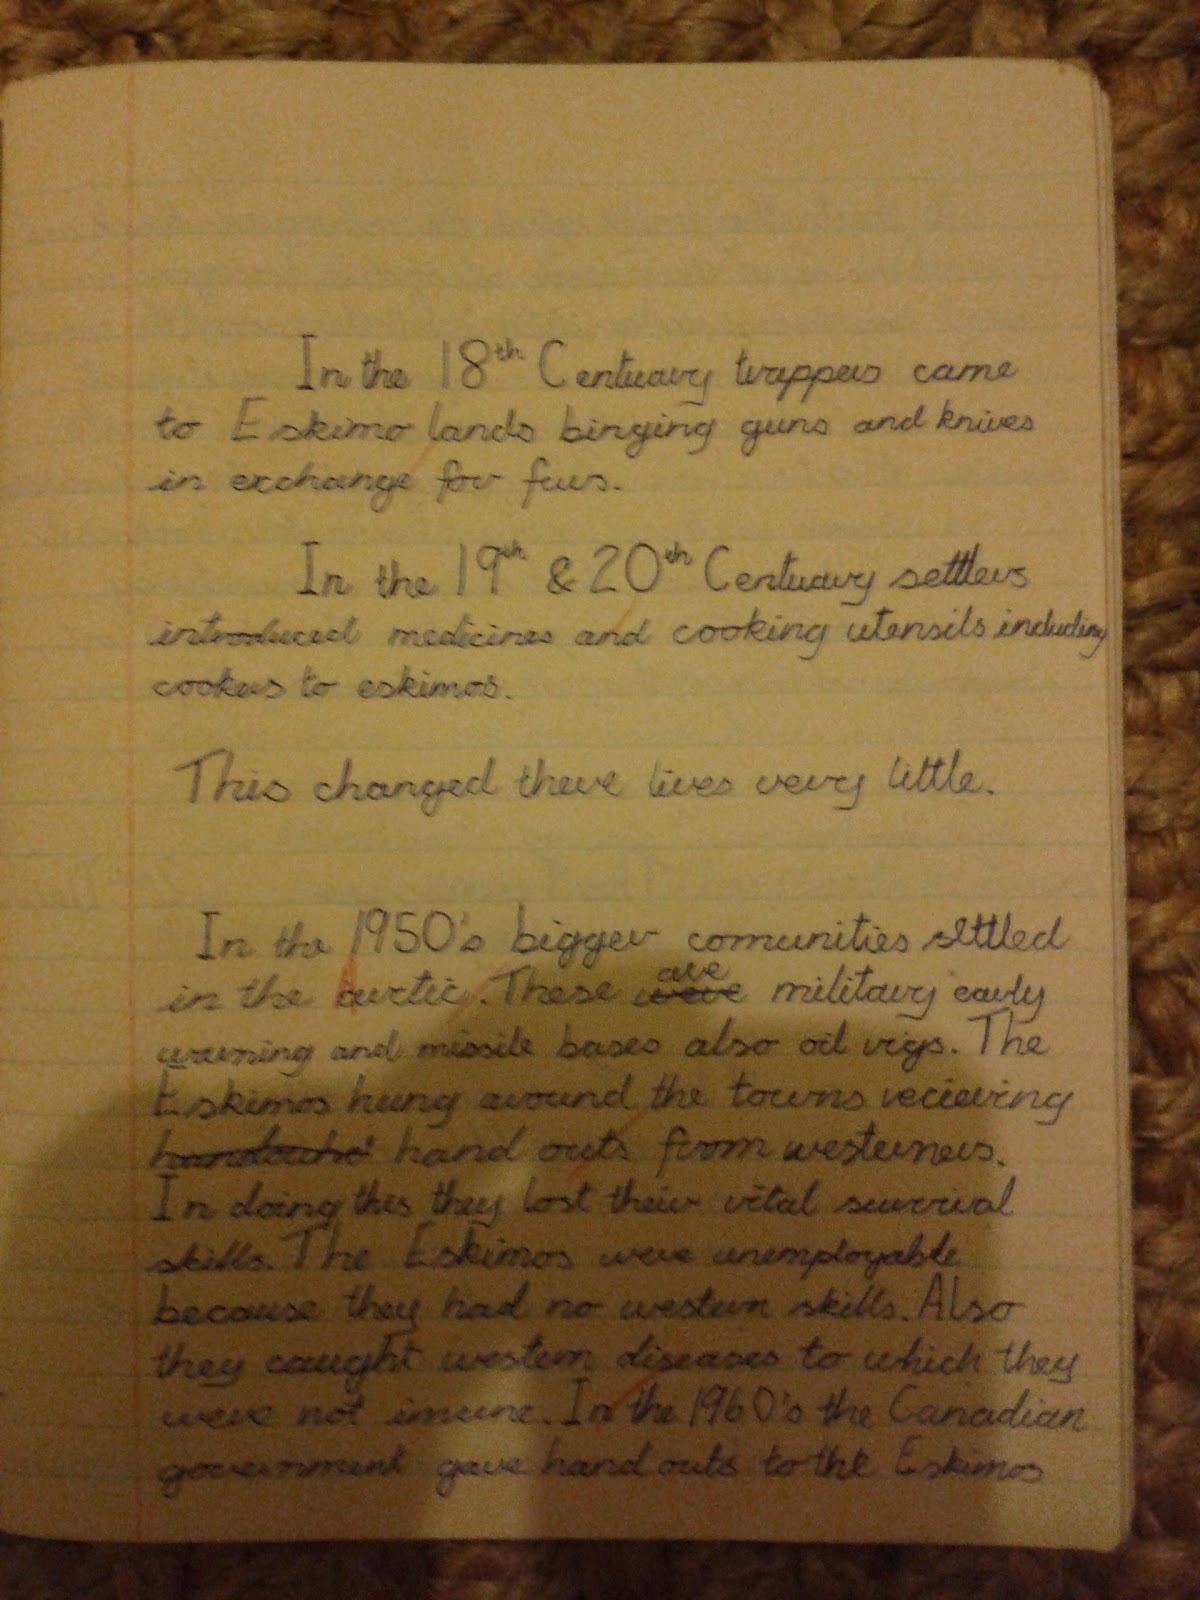 In the 18th Centuary trappers came
to Eskimo lands binging guns and knives
in exchange for furs.
In the 19th & 20th Centuary settlers
introduced medicines and cooking utensils including
cookers to eskimos.
This changed there lives very little.
In the 1950's bigger comunities settled
in the arctic. These are military early
warning and missile bases also oil rigs. The
Eskimos hung around the towns recieving
hand outs from westerners.
In doing this they lost their vital survival
skills. The Eskimos were unemployable
because they had no western skills. Also
they caught western diseases to which they
were not imune. In the 1960's the Canadian
government gave hand outs to the Eskimos